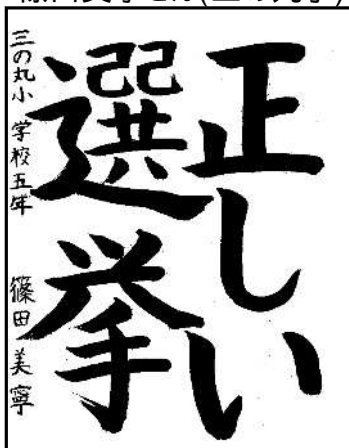 正しい
選挙
三の丸小学校五年 篠田美寧